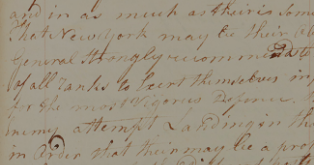 and in as much as their is Some
that New York may be their
General Strongly recommends
of all Ranks to Exert themselves in
for the most Vigorus Defence
enemy attempt Landing in th
in order that their may be a prop